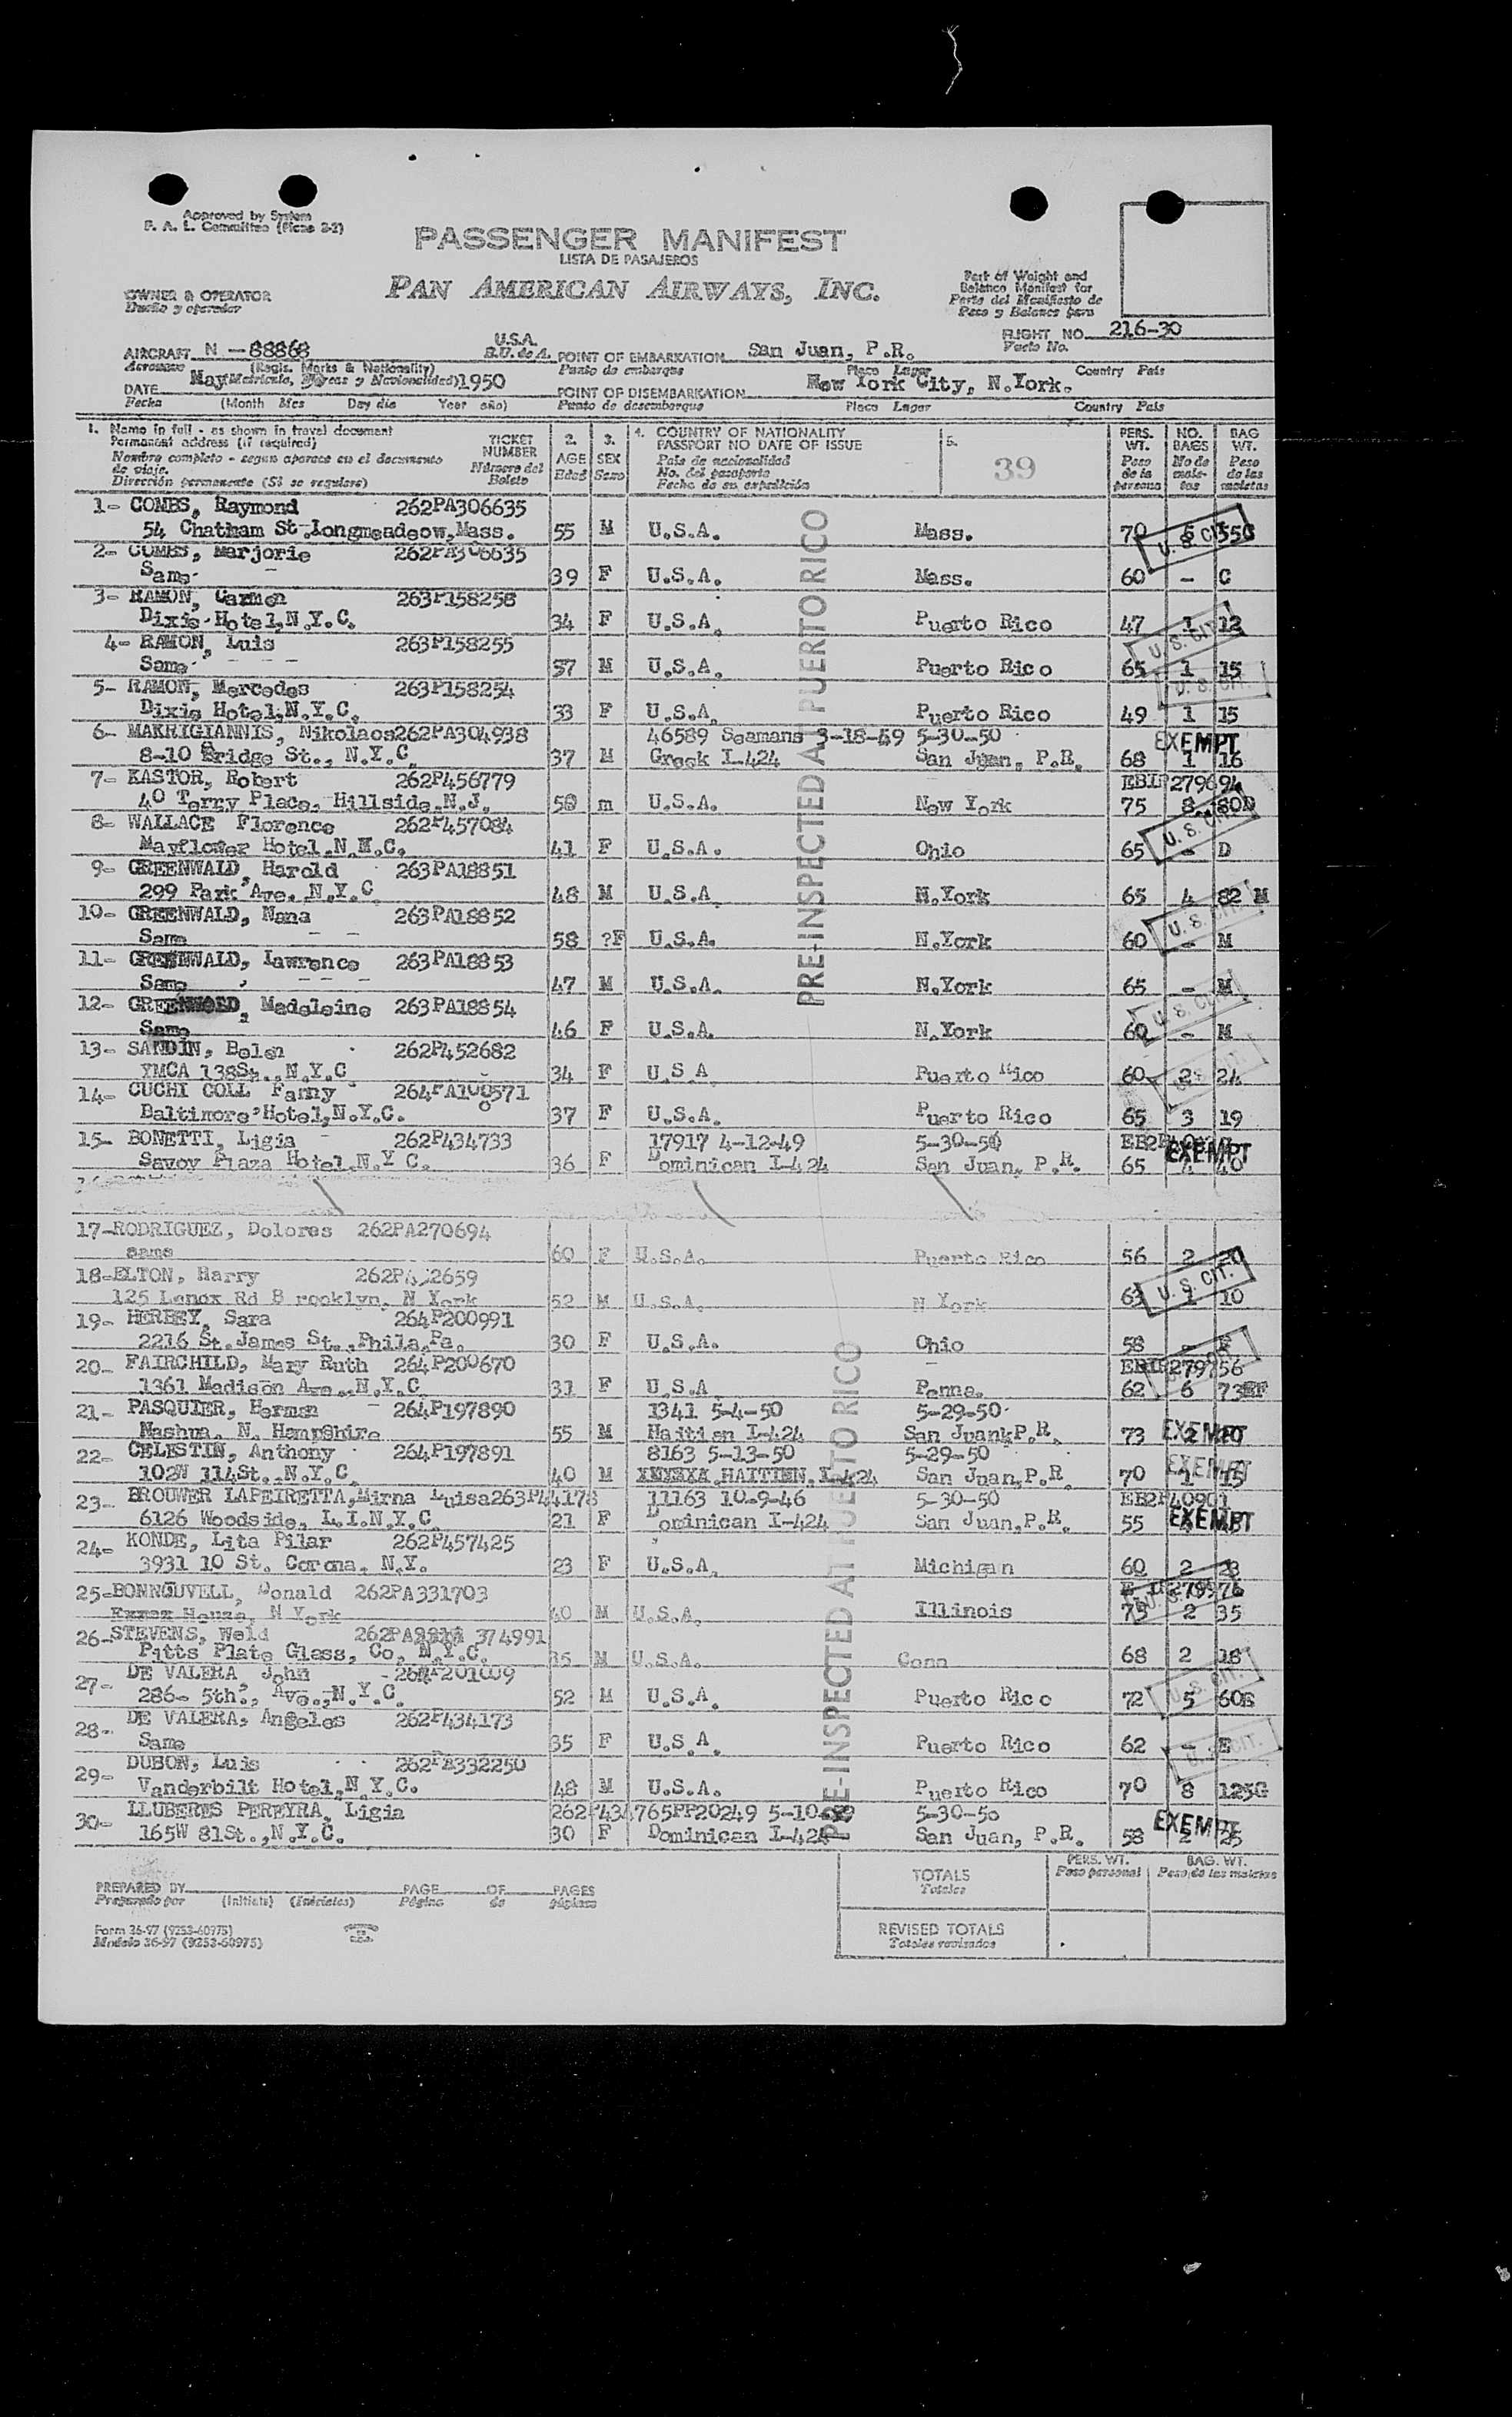 Approved by System
F. A. L. Committee (Picao 2-2)
PASSENGER MANIFEST
LISTA DE PASAJEROS
PAN AMERICAN AIRWAYS, INC.
OWNER & OPERATOR
Dueño y operador
Part of Weight and
Balance Manifest for
Parte del Manifiesto de
Peso y Balance para
FLIGHT NO. 216-30
Vuelo No.
AIRCRAFT N -88868 U.S.A. E.U. de A.
Aeronave (Regis. Marks & Nationality)
POINT OF EMBARKATION San Juan, P.R.
Punto de embarque Place Lugar Country País
DATE May 1950
Fecha (Month Mes Day dia Year año)
POINT OF DISEMBARKATION New York City, N.York.
Punto de desembarque Place Lugar Country País
1. Name in full - as shown in travel document
Permanent address (if required)
Nombre completo - segun aparece en el documento
de viaje.
Dirección permanente (Si se requiere)
TICKET
NUMBER
Número del
Boleto
2.
AGE
Edad
3.
SEX
Sexo
4. COUNTRY OF NATIONALITY
PASSPORT NO DATE OF ISSUE
País de nacionalidad
No. del pasaporte
Fecha de su expedición
5.
39
PERS.
WT.
Peso
de la
persona
NO.
BAGS
No de
male-
tas
BAG
WT.
Peso
de las
maletas
1- COMBS, Raymond 262PA306635
54 Chatham St.Longmeadeow,Mass. 55 M U.S.A. Mass. 70
2- COMBS, Marjorie 262PA306635
Same 39 F U.S.A. Mass. 60 - C
3- RAMON, Carmen 263P158258
Dixie Hotel,N.Y.C. 34 F U.S.A. Puerto Rico 47 1 12
4- RAMON, Luis 263P158255
Same - - - 37 M U.S.A. Puerto Rico 65 1 15
5- RAMON, Mercedes 263P158254
Dixie Hotel,N.Y.C. 33 F U.S.A. Puerto Rico 49 1 15
6- MAKRIGIANNIS, Nikolaos262PA304938 46589 Seamans 3-18-49 5-30-50 EXEMPT
8-10 Bridge St., N.Y.C. 37 M Greek I-424 San Juan, P.R. 68 1 16
7- KASTOR, Robert 262P456779
40 Terry Place, Hillside,N.J. m U.S.A. New York 75 8 80D
8- WALLACE Florence 262P457084
Mayflower Hotel,N.Y.C. 41 F U.S.A. Ohio 65 - D
9- GREENWALD, Harold 263PA18851
299 Park Ave. N.Y.C 48 M U.S.A N.York 65 4 82 M
10- GREENWALD, Nana 263PA18852
Same - - 58 ?F U.S.A. N.York 60 - M
11- GREENWALD, Lawrence 263PA18853
Same - - - 47 M U.S.A. N.York 65 - M
12- Madeleine 263PA18854
Same 46 F U.S.A. N.York 60 - M
13- SANDIN, Belen 262P452682
YMCA 138St., N.Y.C 34 F U.S.A Puerto Rico 60 2 24
14- CUCHI COLL Fanny
Baltimore Hotel,N.Y.C. 37 F U.S.A. Puerto Rico 65 3 19
15- BONETTI, Ligia 262P434733 17917 4-12-49 5-30-50
Savoy Plaza Hotel,N.Y C. 36 F Dominican I-424 San Juan, P.R. 65 4 40 EXEMPT
17-RODRIGUEZ, Dolores 262PA270694
same 60 F U.S.A. Puerto Rico 56 2 20
18-ELTON, Harry
125 Lenox Rd B rooklyn, N York 52 M U.S.A. N York 63 1 10
19- HERBEY, Sara 264P200991
2216 St.James St.,Phila,Pa. 30 F U.S.A. Ohio 58
20- FAIRCHILD, Mary Ruth 264P200670
1361 Madison Ave.,N.Y.C 31 F U.S.A Penna. 62 6
21- PASQUIER, Herman 264P197890 1341 5-4-50 5-29-50
Nashua, N. Hampshire 55 M Haitien I-424 San Juan,P.R. 73 EXEMPT
22- CELESTIN, Anthony 264P197891 8163 5-13-50 5-29-50
102W 114St.,N.Y.C. 40 M HAITIEN I-424 San Juan,P.R 70 1 15 EXEMPT
23- BROUWER LAPEIRETTA,Mirna Luisa263P44178 11163 10-9-46 5-30-50 EB2P40901
6126 Woodside, L.I.N.Y.C. 21 F Dominican I-424 San Juan,P.R. 55 EXEMPT
24- KONDE, Lita Pilar 262P457425
3931 10 St. Corona, N.Y. 23 F U.S.A. Michigan 60 2 23
25-BONNOUVELL, Donald 262PA331703
Essex House, N York 40 M U.S.A. Illinois 75 2 35
26-STEVENS, Weid 374991
Pitts Plate Glass, Co, N.Y.C. 35 M U.S.A. Conn 68 2 18
27- DE VALERA John
286- 5th., Ave.,N.Y.C. 52 M U.S.A. Puerto Rico 72 5 60E
28- DE VALERA, Angeles 262P434173
Same 35 F U.S.A. Puerto Rico 62 - E
29- DUBON, Luis 262PA332250
Vanderbilt Hotel,N Y.C. 48 M U.S.A. Puerto Rico 70 8 125G
30- LLUBERES PEREYRA, Ligia 262P434765PP20249 5-30-50
165W 81St.,N.Y.C. 30 F Dominican I-424 San Juan, P.R. 58 2 25 EXEMPT
PRE-INSPECTED AT PUERTO RICO
PRE-INSPECTED AT PUERTO RICO
U. S. CIT.
PREPARED BY
Preparado por (Initials) (Iniciales)
PAGE OF PAGES
Página de páginas
TOTALS
Totales
PERS. WT.
Peso personal
BAG. WT.
Peso de las maletas
REVISED TOTALS
Totales revisados
Form 36-97 (9253-60975)
Modelo 36-97 (9253-60975)